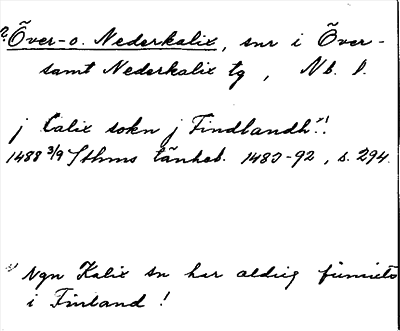 ? Över- o. Nederkalix, snr i Över-
samt Nederkalix tg, Nb. l.
j Calix sokn j Findlandh ¹⁾!
1488 3/9 Sthms tänkeb. 1483-92, s. 294.
¹⁾ Ngn Kalix sn har aldrig funnits
i Finland!